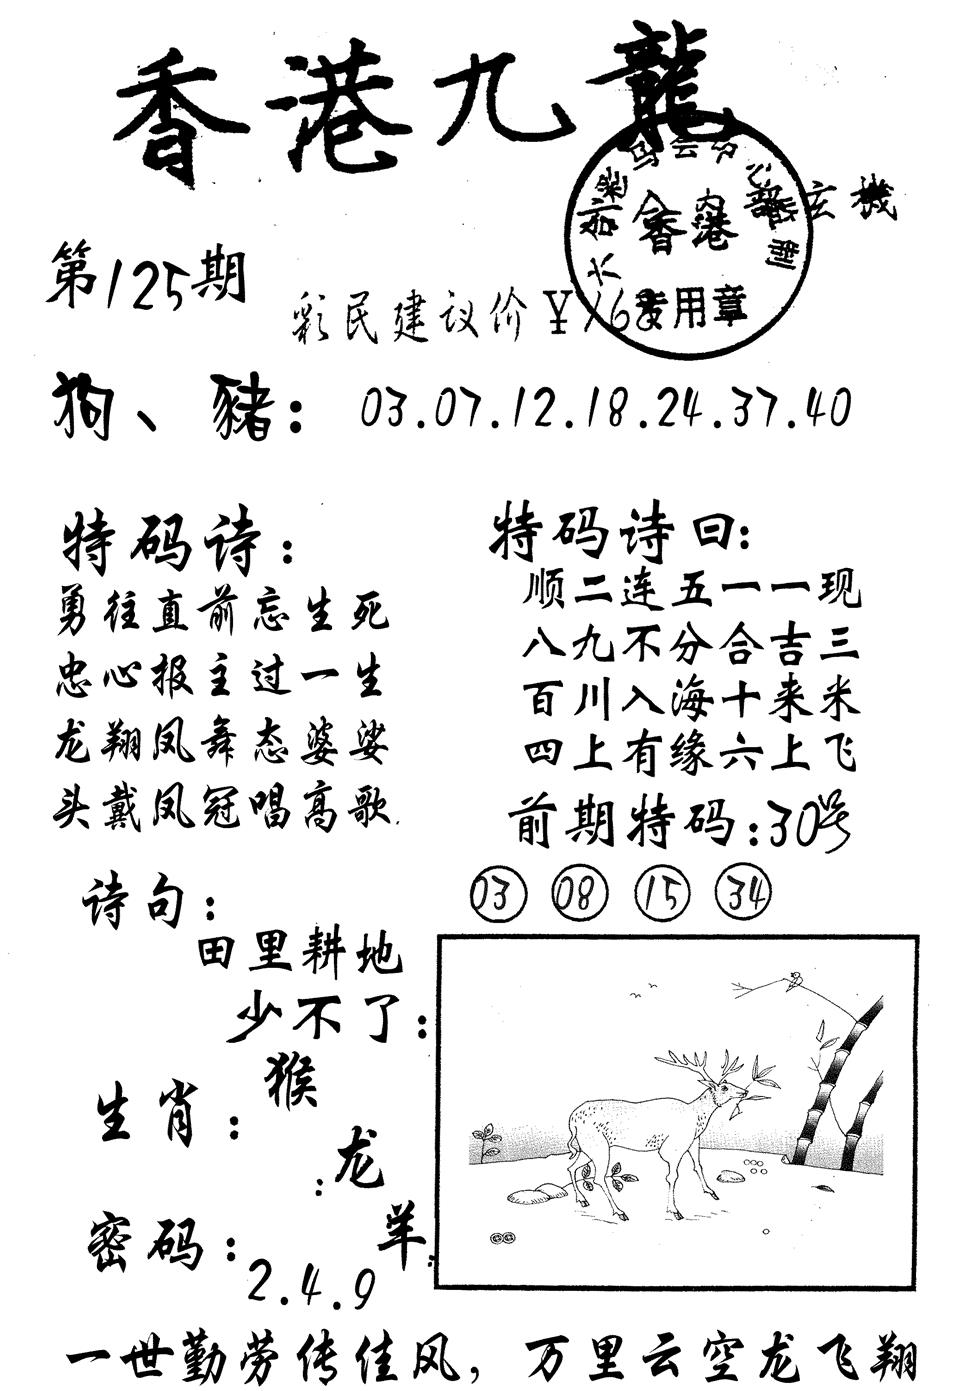 香港九龍
玄機
香港
专用章
第125期
彩民建议价¥168
狗、豬：03.07.12.18.24.37.40
特码诗：
勇往直前忘生死
忠心报主过一生
龙翔凤舞态婆娑
头戴凤冠唱高歌.
特码诗曰：
顺二连五一一现
八九不分合吉三
百川入海十来米
四上有缘六上飞
前期特码：30号
03 08 15 34
诗句：
田里耕地
少不了：
生肖：猴
：龙
羊.
密码：
2.4.9
一世勤劳传佳风，万里云空龙飞翔